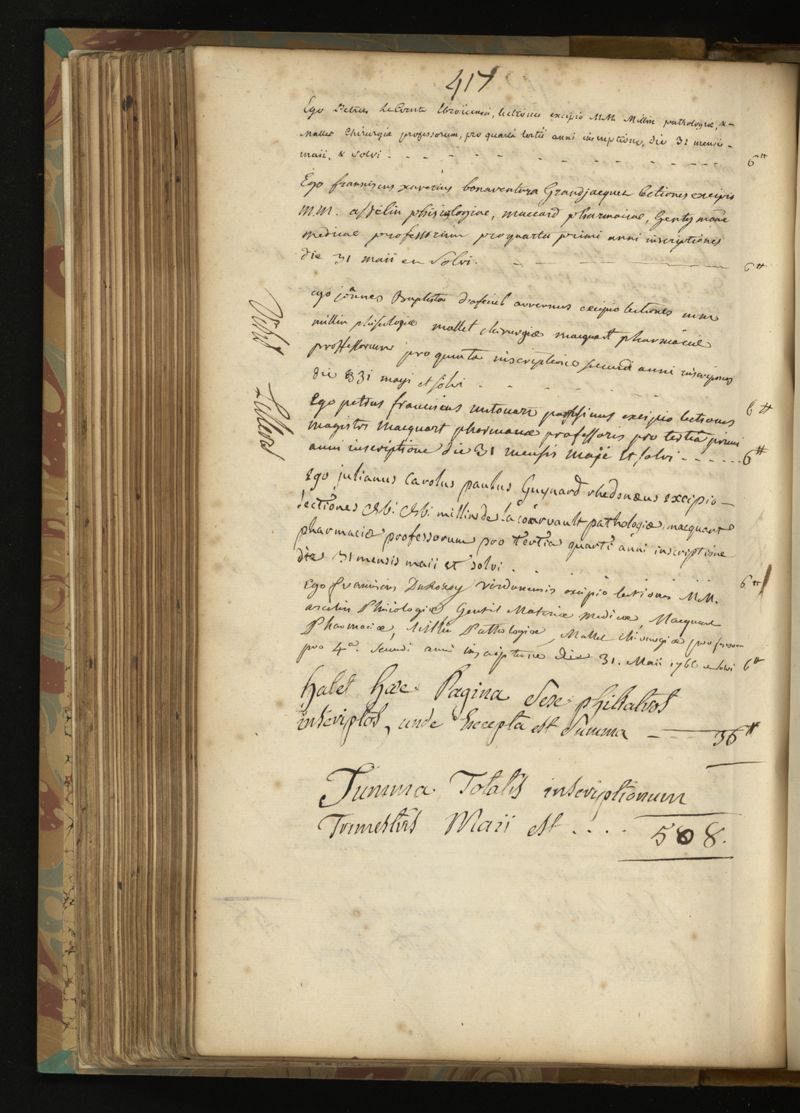 417
Ego Petrus LeComte Ebroicensis, lectiones excipio MM. Millin pathologiæ, &
Mallet Chirurgiæ professorum, pro quarta tertii anni inscriptione, die 31 mensis
maii, & solvi - - - - - - - - - 6#
Ego franciscus xaverius bonaventura Grandjacquet lectiones excipio
M.M. asselin phisiologiae, maccard pharmaciae, Genty materiae
medicae professorum pro quarta primi anni inscriptiones
die 31 maii en Solvi. 6#
ego joânnes Baptista arvernus excipio lectiones mm
millin phisiologiæ mallet chirurgiæ macquart pharmaciæ
proffessorum pro quarta inscriptione secundi anni inscriptionis
die 31 maji et solvi - - - - 6#
Ego petrus franciscus parisinus excipio lectiones
magistri macquart pharmaciæ professoris pro tertia primi
anni inscriptione die 31 mensis maji et solvi - - - - - - 6#
Ego julianus Carolus paulus Guynard rhedonæus excipio
lectiones millin de la courvault pathologiæ, macquart
pharmaciæ professorum pro tertia quarti anni inscriptione
die 31 mensis maii et solvi . . . 6#
Ego franciscus Virdunensis excipio lectiones M.M.
asselin Phisiologiæ, Gentil Materiæ medicæ, Macquart
Pharmaciæ, Millin Pathologiæ, Mallet chirurgiæ professorum
pro 4a. Secundi anni inscriptione die 31. Maii 1766 et solvi 6#
habet hæc Pagina Sex philiatros
inscriptos, unde Recepta est Summa — 36#
Summa Totalis inscriptionum
Trimestris Maii est . . . . 508.